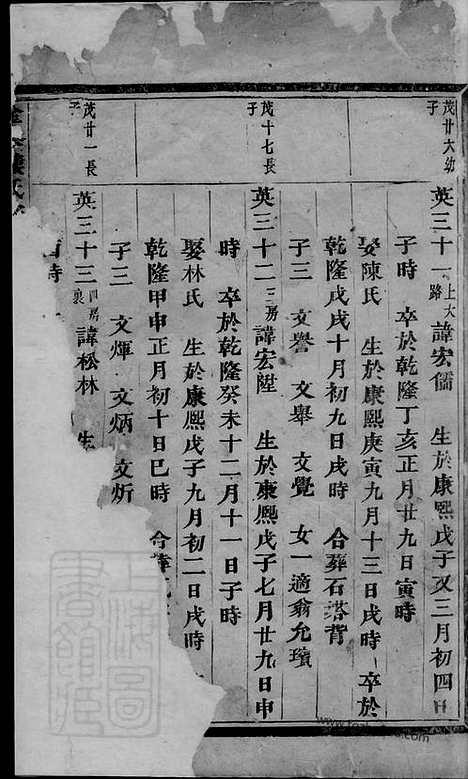 茂廿六幼子
英三十一 上大路 諱宏儒 生於康熙戊子又三月初四日
子時 卒於乾隆丁亥正月廿九日寅時
娶陳氏 生於康熙庚寅九月十三日戌時 卒於
乾隆戊戌十月初九日戌時 合葬石塔背
子三 文譽 文舉 文覺 女一適翁允璸
茂十七長子
英三十二 三房 諱宏陞 生於康熙戊子七月廿九日申
時 卒於乾隆癸未十二月十一日子時
娶林氏 生於康熙戊子九月初二日戌時
乾隆甲申正月初十日巳時 合葬
子三 文煇 文炳 文炘
茂廿一長子
英三十三 四房裏 諱松林 生
酉時
氏
上海圖書館藏